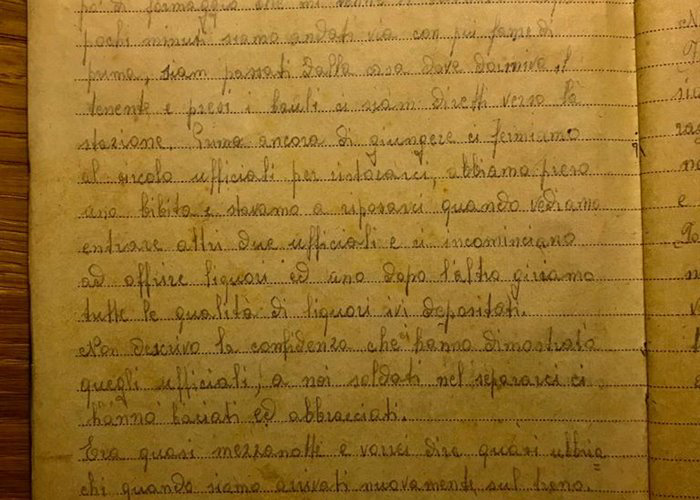 po' di formaggio che mi
pochi minuti siamo andati via con più fame di
prima, siam passati dalla casa dove dormiva il
tenente e presi i bauli ci siam diretti verso la
stazione. Prima ancora di giungere ci fermiamo
al circolo ufficiali per ristorarci, abbiamo preso
una bibita e stavamo a riposarci quando vediamo
entrare altri due ufficiali e ci incominciano
ad offrire liquori ed uno dopo l'altro giriamo
tutte le qualità di liquori ivi depositati.
Non descrivo la confidenza che ci hanno dimostrato
quegli ufficiali, a noi soldati nel separarci ci
hanno baciati ed abbracciati.
Era quasi mezzanotte e vorrei dire quasi ubbria=
chi quando siamo arrivati nuovamente sul treno.